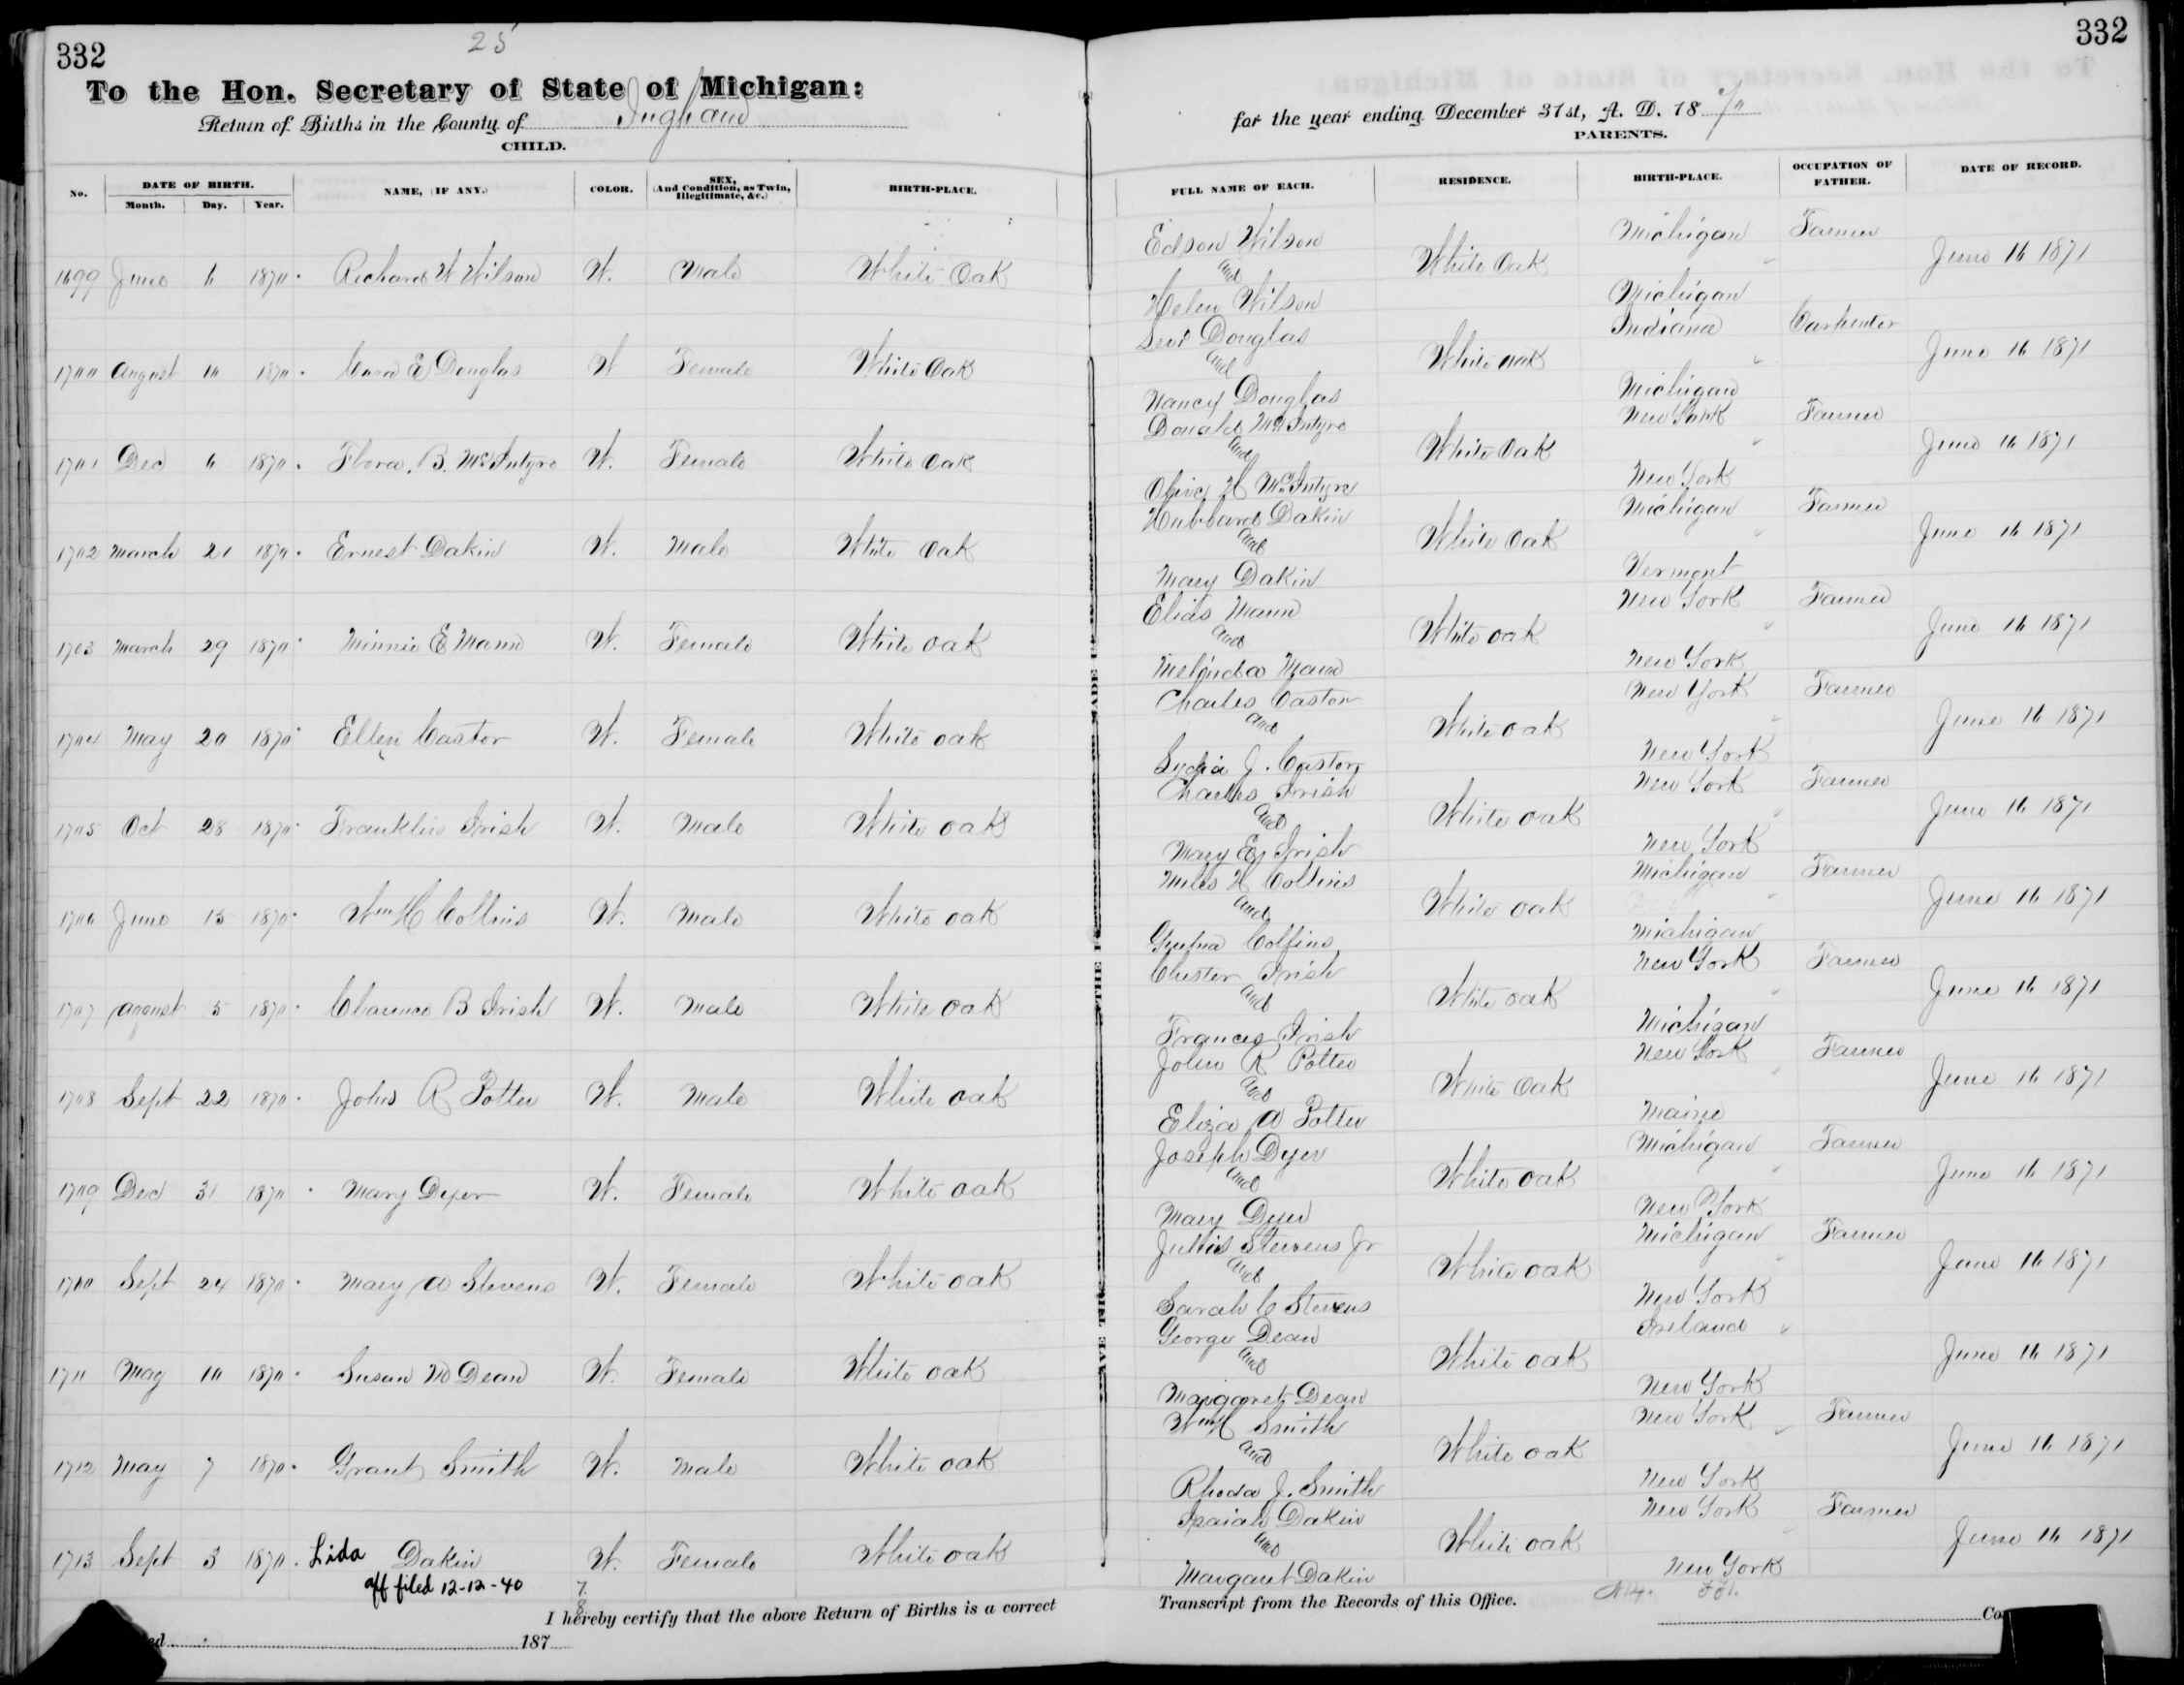 332
25
332
To the Hon. Secretary of State of Michigan:
Return of Births in the County of Ingham
for the year ending December 31st, A. D. 1870
CHILD.
PARENTS.
No. DATE OF BIRTH. NAME, (IF ANY.) COLOR. SEX, (And Condition, as Twin, Illegitimate, &c.) BIRTH-PLACE. FULL NAME OF EACH. RESIDENCE. BIRTH-PLACE. OCCUPATION OF FATHER. DATE OF RECORD.
Month. Day. Year.
Edson Wilson Michigan Farmer
1699 June 6 1870 Richard W Wilson W. Male White Oak and White Oak June 16 1871
Helen Wilson Michigan
Levi Douglas Indiana Carpenter
1700 August 10 1870 Cora E Douglas W Female White Oak and White oak June 16 1871
Nancy Douglas Michigan
Donald McIntyre New York Farmer
1701 Dec 6 1870 Flora. B. McIntyre W. Female White Oak and White Oak June 16 1871
Olive H McIntyre New York
Hubbard Dakin Michigan Farmer
1702 March 21 1870 Ernest Dakin W. Male White Oak and White Oak June 16 1871
Mary Dakin Vermont
Elias Mann New York Farmer
1703 March 29 1870 Minnie E Mann W. Female White oak and White oak June 16 1871
Melinda Mann New York
Charles Castor New York Farmer
1704 May 20 1870 Ellen Castor W. Female White oak and White oak June 16 1871
Lydia J. Castor New York
Charles Irish New York Farmer
1705 Oct 28 1870 Franklin Irish W. Male White oak and White oak June 16 1871
Mary E Irish New York
Miles H Collins Michigan Farmer
1706 June 13 1870 Wm H Collins W. Male White oak and White oak June 16 1871
Collins Michigan
Chester Irish New York Farmer
1707 August 5 1870 Clarence B Irish W. Male White oak and White oak June 16 1871
Frances Irish Michigan
John R Potter New York Farmer
1708 Sept 22 1870 John R Potter W. Male White oak and White Oak June 16 1871
Eliza A Potter Maine
Joseph Dyer Michigan Farmer
1709 Dec 31 1870 Mary Dyer W. Female White oak and White oak June 16 1871
Mary Dyer New York
Stevens Jr Michigan Farmer
1710 Sept 24 1870 Mary A Stevens W. Female White oak and White oak June 16 1871
Sarah C Stevens New York
George Dean Ireland "
1711 May 10 1870 Susan M Dean W. Female White oak and White oak June 16 1871
Margaret Dean New York
Wm H Smith New York Farmer
1712 May 7 1870 Grant Smith W. Male White oak and White oak June 16 1871
Rhoda J. Smith New York
Isaiah Dakin New York Farmer
1713 Sept 3 1870 Lida Dakin W. Female White oak and White oak June 16 1871
aff filed 12-12-40
Margaret Dakin New York
7.
8
I hereby certify that the above Return of Births is a correct Transcript from the Records of this Office.
187